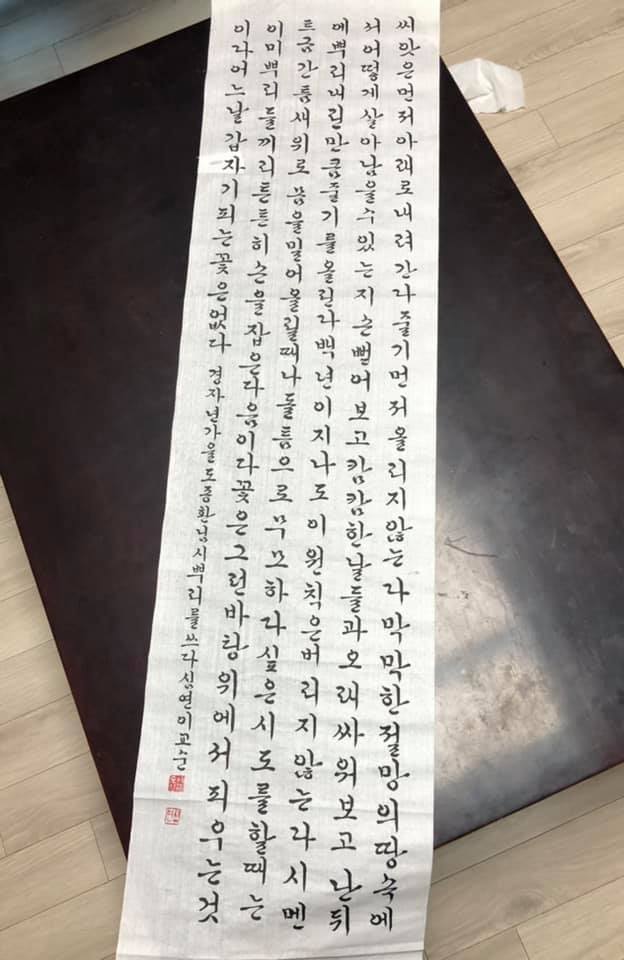 씨앗은먼저아래로내려간다줄기먼저올리지않는다막막한절망의땅속에
서어떻게살아남을수있는지손뻗어보고캄캄한날들과오래싸워보고난뒤
에뿌리내린만큼줄기를올린다백년이지나도이원칙은버리지않는다시멘
트금간틈새위로몸을밀어올릴때나돌틈으로무모하다싶은시도를할때는
이미뿌리들끼리튼튼히손을잡은다음이다꽃은그런바탕위에서피우는것
이라어느날갑자기피는꽃은없다 경자년가을도종환님시뿌리를쓰다심연이교순